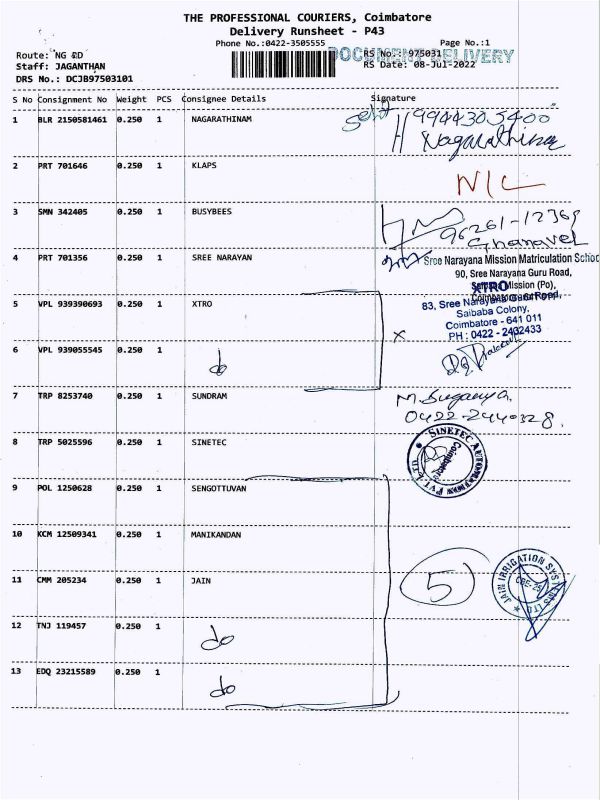 THE PROFESSIONAL COURIERS, Coimbatore
Delivery Runsheet - P43
Phone No.:0422-3505555
Page No.:1
DOCUMENT DELIVERY
Route: NG RD
RS No.: 975031
Staff: JAGANTHAN
RS Date: 08-Jul-2022
DRS No.: DCJB97503101
S No Consignment No Weight PCS Consignee Details Signature
1 BLR 2150581461 0.250 1 NAGARATHINAM 9944305400
Nagarathinam
2 PRT 701646 0.250 1 KLAPS N/C
3 SMN 342405 0.250 1 BUSYBEES 96261-12369
Gnanavel
4 PRT 701356 0.250 1 SREE NARAYAN Sree Narayana Mission Matriculation School
90, Sree Narayana Guru Road,
Saibaba Mission (Po),
5 VPL 939390693 0.250 1 XTRO XTRO
83, Sree Narayana Guru Road,
Saibaba Colony,
Coimbatore - 641 011
PH : 0422 - 2432433
6 VPL 939055545 0.250 1 do
7 TRP 8253740 0.250 1 SUNDRAM M. Suganya.
0422-2440328.
8 TRP 5025596 0.250 1 SINETEC SINETEC AUTOMATION PVT. LTD.
Coimbatore
9 POL 1250628 0.250 1 SENGOTTUVAN
10 KCM 12509341 0.250 1 MANIKANDAN
11 CMM 205234 0.250 1 JAIN 5 JAIN IRRIGATION SYSTEMS LTD
CBE-25
12 TNJ 119457 0.250 1 do
13 EDQ 23215589 0.250 1 do